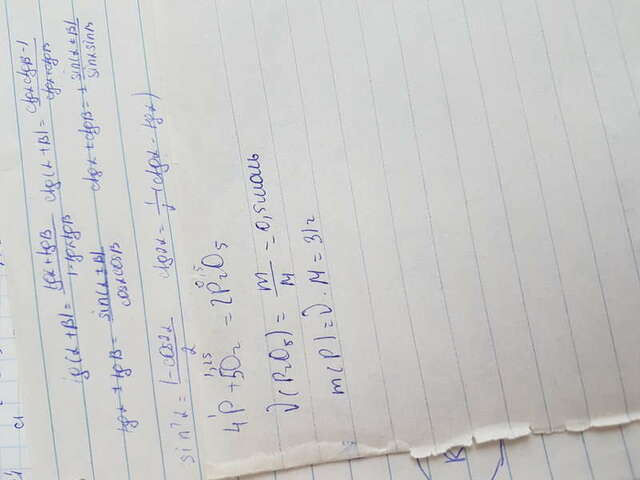 a
tg(α + β) = (tgα + tgβ)/(1 - tgαtgβ) ctg(α + β) = (ctgα ctgβ - 1)/(ctgα + ctgβ)
tgα ± tgβ = sin(α ± β)/(cosα cosβ) ctgα ± ctgβ = ± sin(α ± β)/(sinα sinβ)
sin²α = (1 - cos2α)/2 ctg2α = 1/2 (ctgα - tgα)
1 1,25 0,5
4P + 5O₂ = 2P₂O₅
ν(P₂O₅) = m/M = 0,5моль
m(P) = ν · M = 31г
K